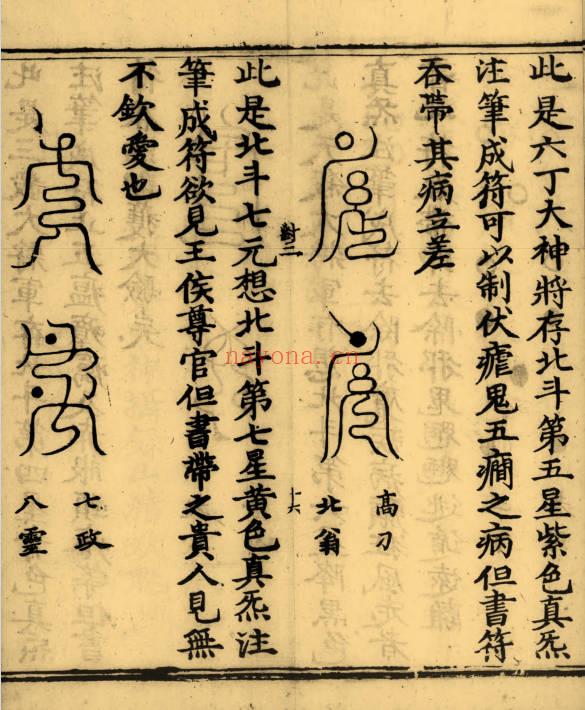 此是六丁大神將存北斗第五星紫色真炁
注筆成符可以制伏瘧鬼五癇之病但書符
吞帶其病立差
高刀
北翁
對二
十六
此是北斗七元想北斗第七星黃色真炁注
筆成符欲見王侯尊官但書帶之貴人見無
不欽愛也
七政
八靈
nayona.cn